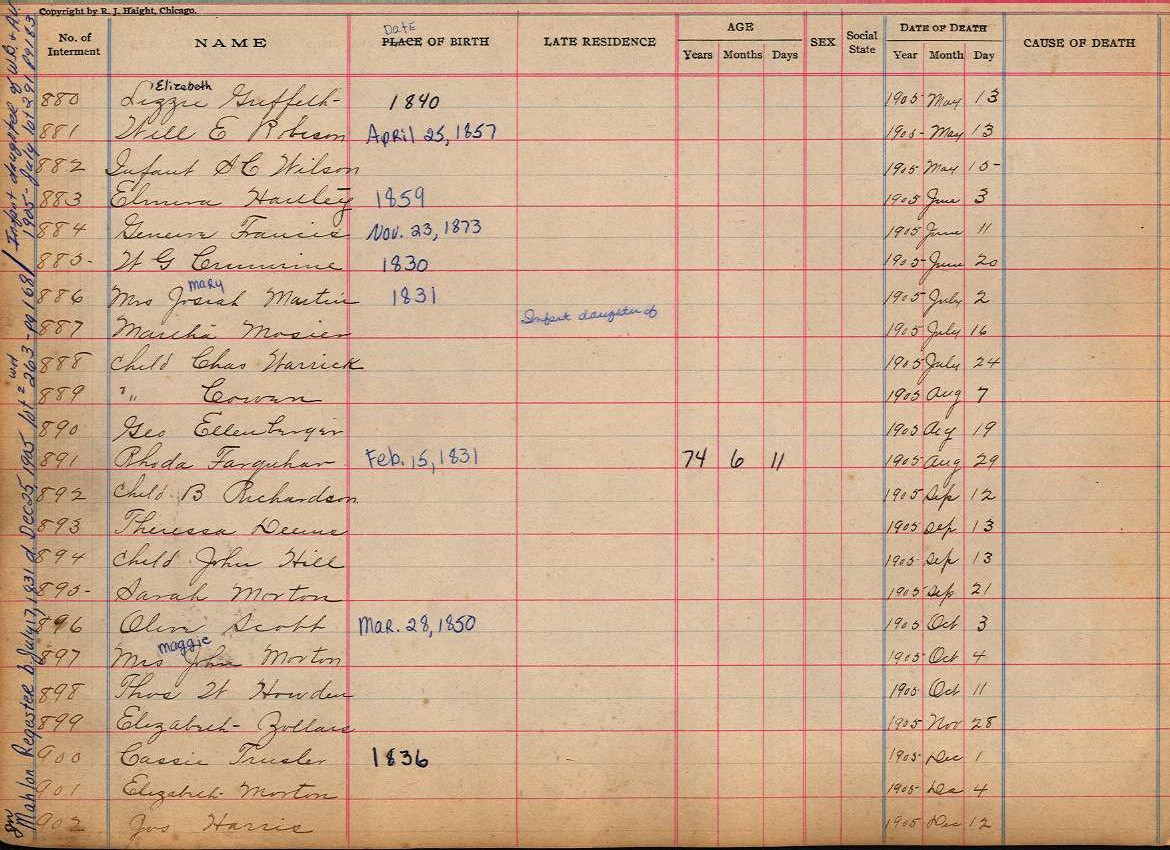 Copyright by R. J. Haight, Chicago.
No. of Interment NAME Date PLACE OF BIRTH LATE RESIDENCE AGE Years Months Days SEX Social State DATE OF DEATH Year Month Day CAUSE OF DEATH
Elizabeth
880 Lizzie Griffeth 1840 1905 May 13
881 Will E Robison April 25, 1857 1905 May 13
882 Infant S C Wilson 1905 May 15
883 Elmira Hartley 1859 1905 June 3
884 Geneva Francis Nov. 23, 1873 1905 June 11
885 W G Crumrine 1830 1905 June 20
Mary
886 Mrs Josiah Martin 1831 1905 July 2
Infant daughter of
887 Martha Mosier 1905 July 16
888 Child Chas Warrick 1905 July 24
889 " " Cowan 1905 Aug 7
890 Geo Ellenberger 1905 Aug 19
891 Rhoda Farquhar Feb. 15, 1831 74 6 11 1905 Aug 29
892 Child B Richardson 1905 Sep 12
893 Theressa Deems 1905 Sep 13
894 Child John Hill 1905 Sep 13
895 Sarah Morton 1905 Sep 21
896 Oliver Scott Mar. 28, 1850 1905 Oct 3
maggie
897 Mrs John Morton 1905 Oct 4
898 Thos W Howden 1905 Oct 11
899 Elizabeth Zollars 1905 Nov 28
900 Cassie Trusler 1836 1905 Dec 1
901 Elizabeth Morton 1905 Dec 4
902 Jos Harris 1905 Dec 12
Mahlon Regester b July 17, 1831 d Dec 25 1905 lot 2 wd 263 - pg 168 / Infant daughter of W.B. + 
1905 - July lot 291 Pg 183